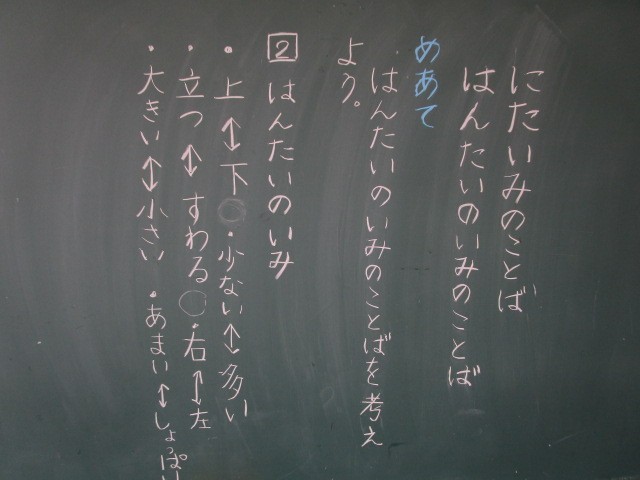 にたいみのことば
はんたいのいみのことば
めあて
はんたいのいみのことばを考え
よう。
2 はんたいのいみ
・上↔下 ・少ない↔多い
・立つ↔すわる ・右↔左
・大きい↔小さい ・あまい↔しょっぱ